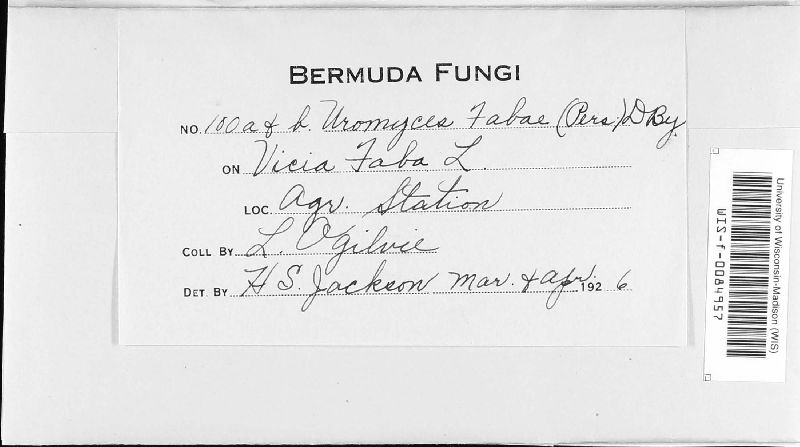 BERMUDA FUNGI
NO. 100 a & b. Uromyces Fabae (Pers.) D By.
ON Vicia Faba L.
LOC. Agr. Station
COLL BY L. Ogilvie
DET. BY H S. Jackson Mar. & Apr. 192 6
University of Wisconsin-Madison (WIS)
WIS-f-0084957